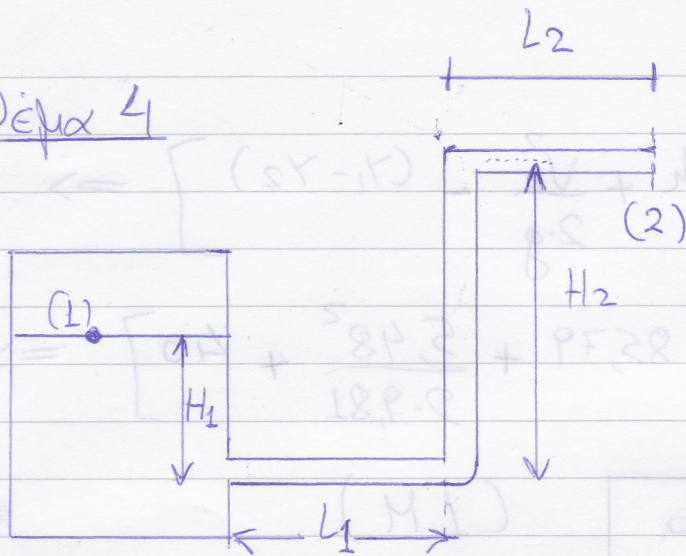 L2
Θέμα 4
(1)
(2)
H2
H1
L1